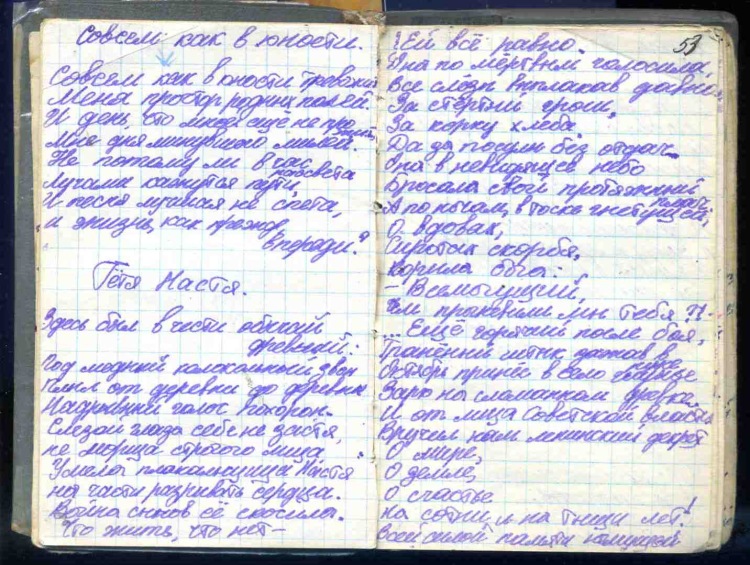 Совсем как в юности.
Совсем как в юности тревожит
Меня простор родных полей.
И день, что мною ещё не прожит,
Мне дня минувшего милей.
Не потому ли в час рассвета
Лучами кажутся пути,
И песня лучшая не спета,
и жизнь, как прежде,
впереди?
Тётя Настя.
Здесь был в чести обычай
древний:
Под медный колокольный звон
Плыл от деревни до деревни
Надрывный голос похорон.
Слезой глаза себе не застя,
не морща строгого лица,
Умела плакальщица Настя
на части разрывать сердца.
Война сынов её скосила.
Что жить, что нет –
53
Ей всё равно.
Она по мёртвым голосила,
Все слёзы выплакав давно
За стёртый грош,
За корку хлеба
Да за посул без отдач.
Она в невидящее небо
Бросала свой протяжный
плач,
А по ночам, в тоске гнетущей,
О вдовах,
Сиротах скорбя,
Корила бога:
– Всемогущий,
Чем прогневили мы тебя?! –
... Ещё горячий после боя,
Гранёный штык зажав в
Октябрь пришёл в село
Зарю на сломанном древке.
И от лица Советской власти
Вручил нам ленинский декрет
О мире,
О земле,
О счастье
на сотни и на тыщи лет!
Всей силой памяти